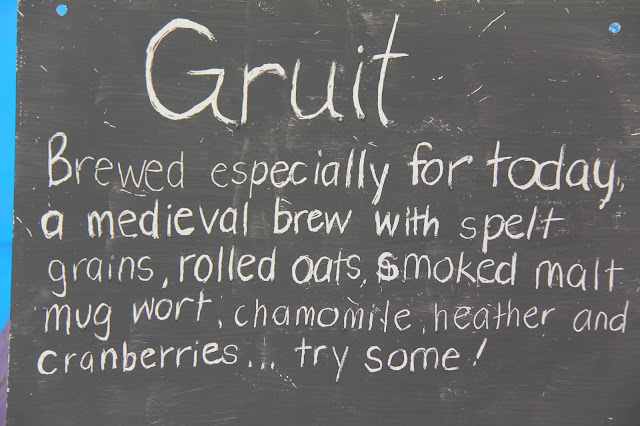 Gruit
Brewed especially for today,
a medieval brew with spelt
grains, rolled oats, smoked malt
mug wort, chamomile, heather and
cranberries... try some!